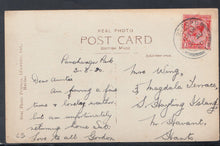 REAL PHOTO
POST CARD
BRITISH MADE
Porchester Park
2-8-20.
Dear Auntie
Are having a fine
time & lovely weather,
but am unfortunately
returning home Sat.
love to all Gordon
Mrs Wing,
3 Magdala Terrace,
S. Hayling Island,
Nr. Havant.
Hants